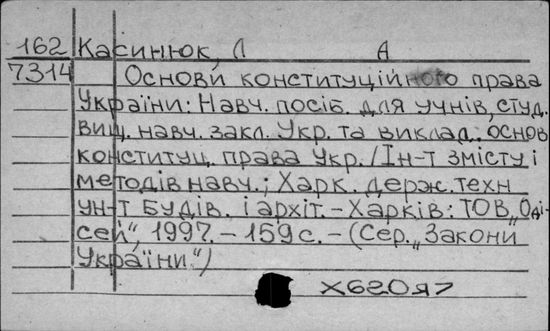 162 Касинюк, Л А
7314 Основи конституційного права
України: Навч. посіб. для учнів, студ.
вищ. навч. закл. Укр. та виклад. основ
конституц. права Укр. / Ін-т змісту і
методів навч.; Харк. держ. техн
ун-т будів. і архіт. - Харків: ТОВ „Оді-
сей“, 1997. - 159 с. - (Сер. „Закони
України“)
Х620я7